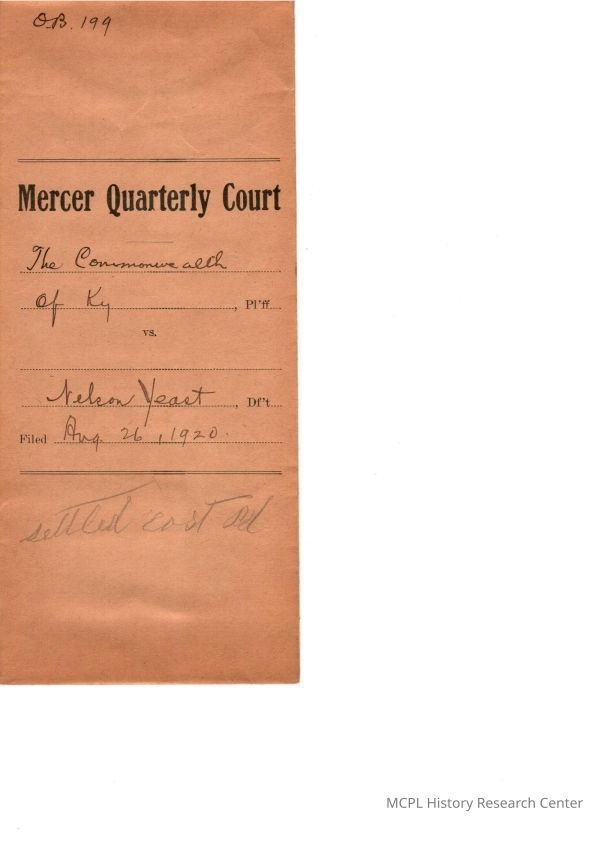 O.B. 199
Mercer Quarterly Court
The Commonwealth
Of Ky , Pl'ff
vs.
Nelson Yeast , Df't
Filed Aug. 26, 1920.
settled cost Pd
MCPL History Research Center